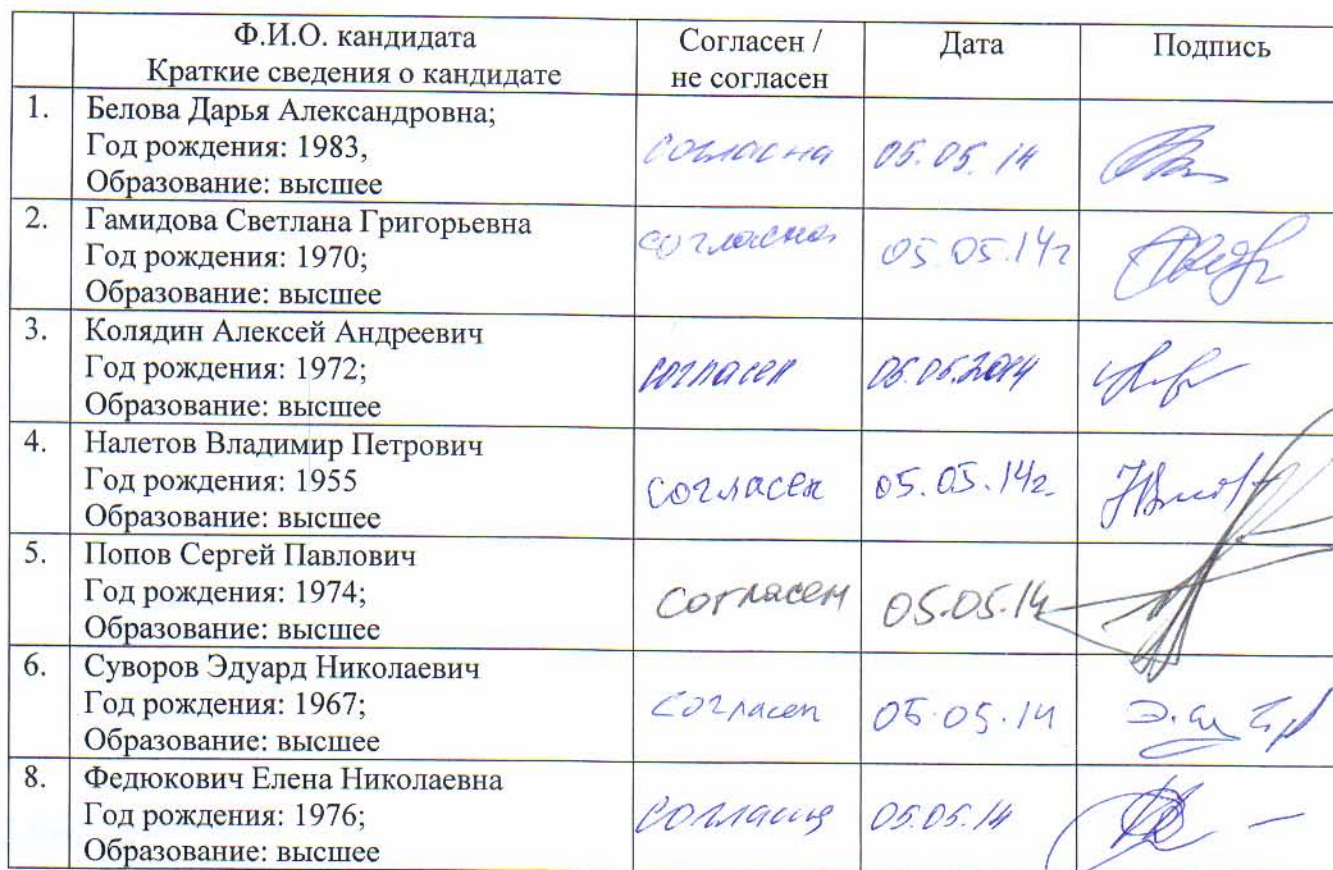 Ф.И.О. кандидата
Краткие сведения о кандидате
Согласен /
не согласен
Дата
Подпись
1.
Белова Дарья Александровна;
Год рождения: 1983,
Образование: высшее
согласна
05.05.14
2.
Гамидова Светлана Григорьевна
Год рождения: 1970;
Образование: высшее
согласна
05.05.14г
3.
Колядин Алексей Андреевич
Год рождения: 1972;
Образование: высшее
согласен
05.05.2014
4.
Налетов Владимир Петрович
Год рождения: 1955
Образование: высшее
согласен
05.05.14г.
5.
Попов Сергей Павлович
Год рождения: 1974;
Образование: высшее
Согласен
05.05.14
6.
Суворов Эдуард Николаевич
Год рождения: 1967;
Образование: высшее
Согласен
05.05.14
8.
Федюкович Елена Николаевна
Год рождения: 1976;
Образование: высшее
согласна
05.05.14